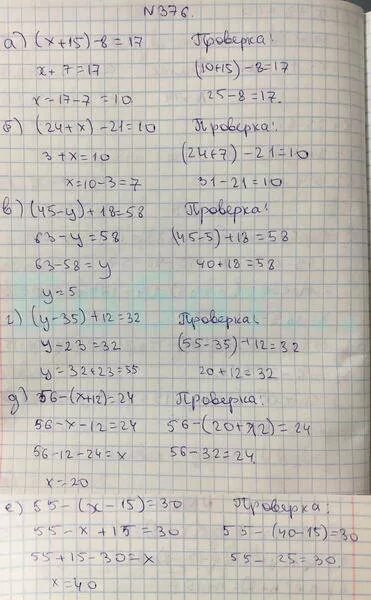 №376.
а) (x+15)-8=17 Проверка:
x+7=17 (10+15)-8=17
x=17-7=10 25-8=17.
б) (24+x)-21=10 Проверка:
3+x=10 (24+7)-21=10
x=10-3=7 31-21=10
в) (45-y)+18=58 Проверка:
63-y=58 (45-5)+18=58
63-58=y 40+18=58
y=5
г) (y-35)+12=32 Проверка:
y-23=32 (55-35)+12=32
y=32+23=55 20+12=32
д) 56-(x+12)=24 Проверка:
56-x-12=24 56-(20+12)=24
56-12-24=x 56-32=24.
x=20
е) 55-(x-15)=30 Проверка:
55-x+15=30 55-(40-15)=30
55+15-30=x 55-25=30.
x=40